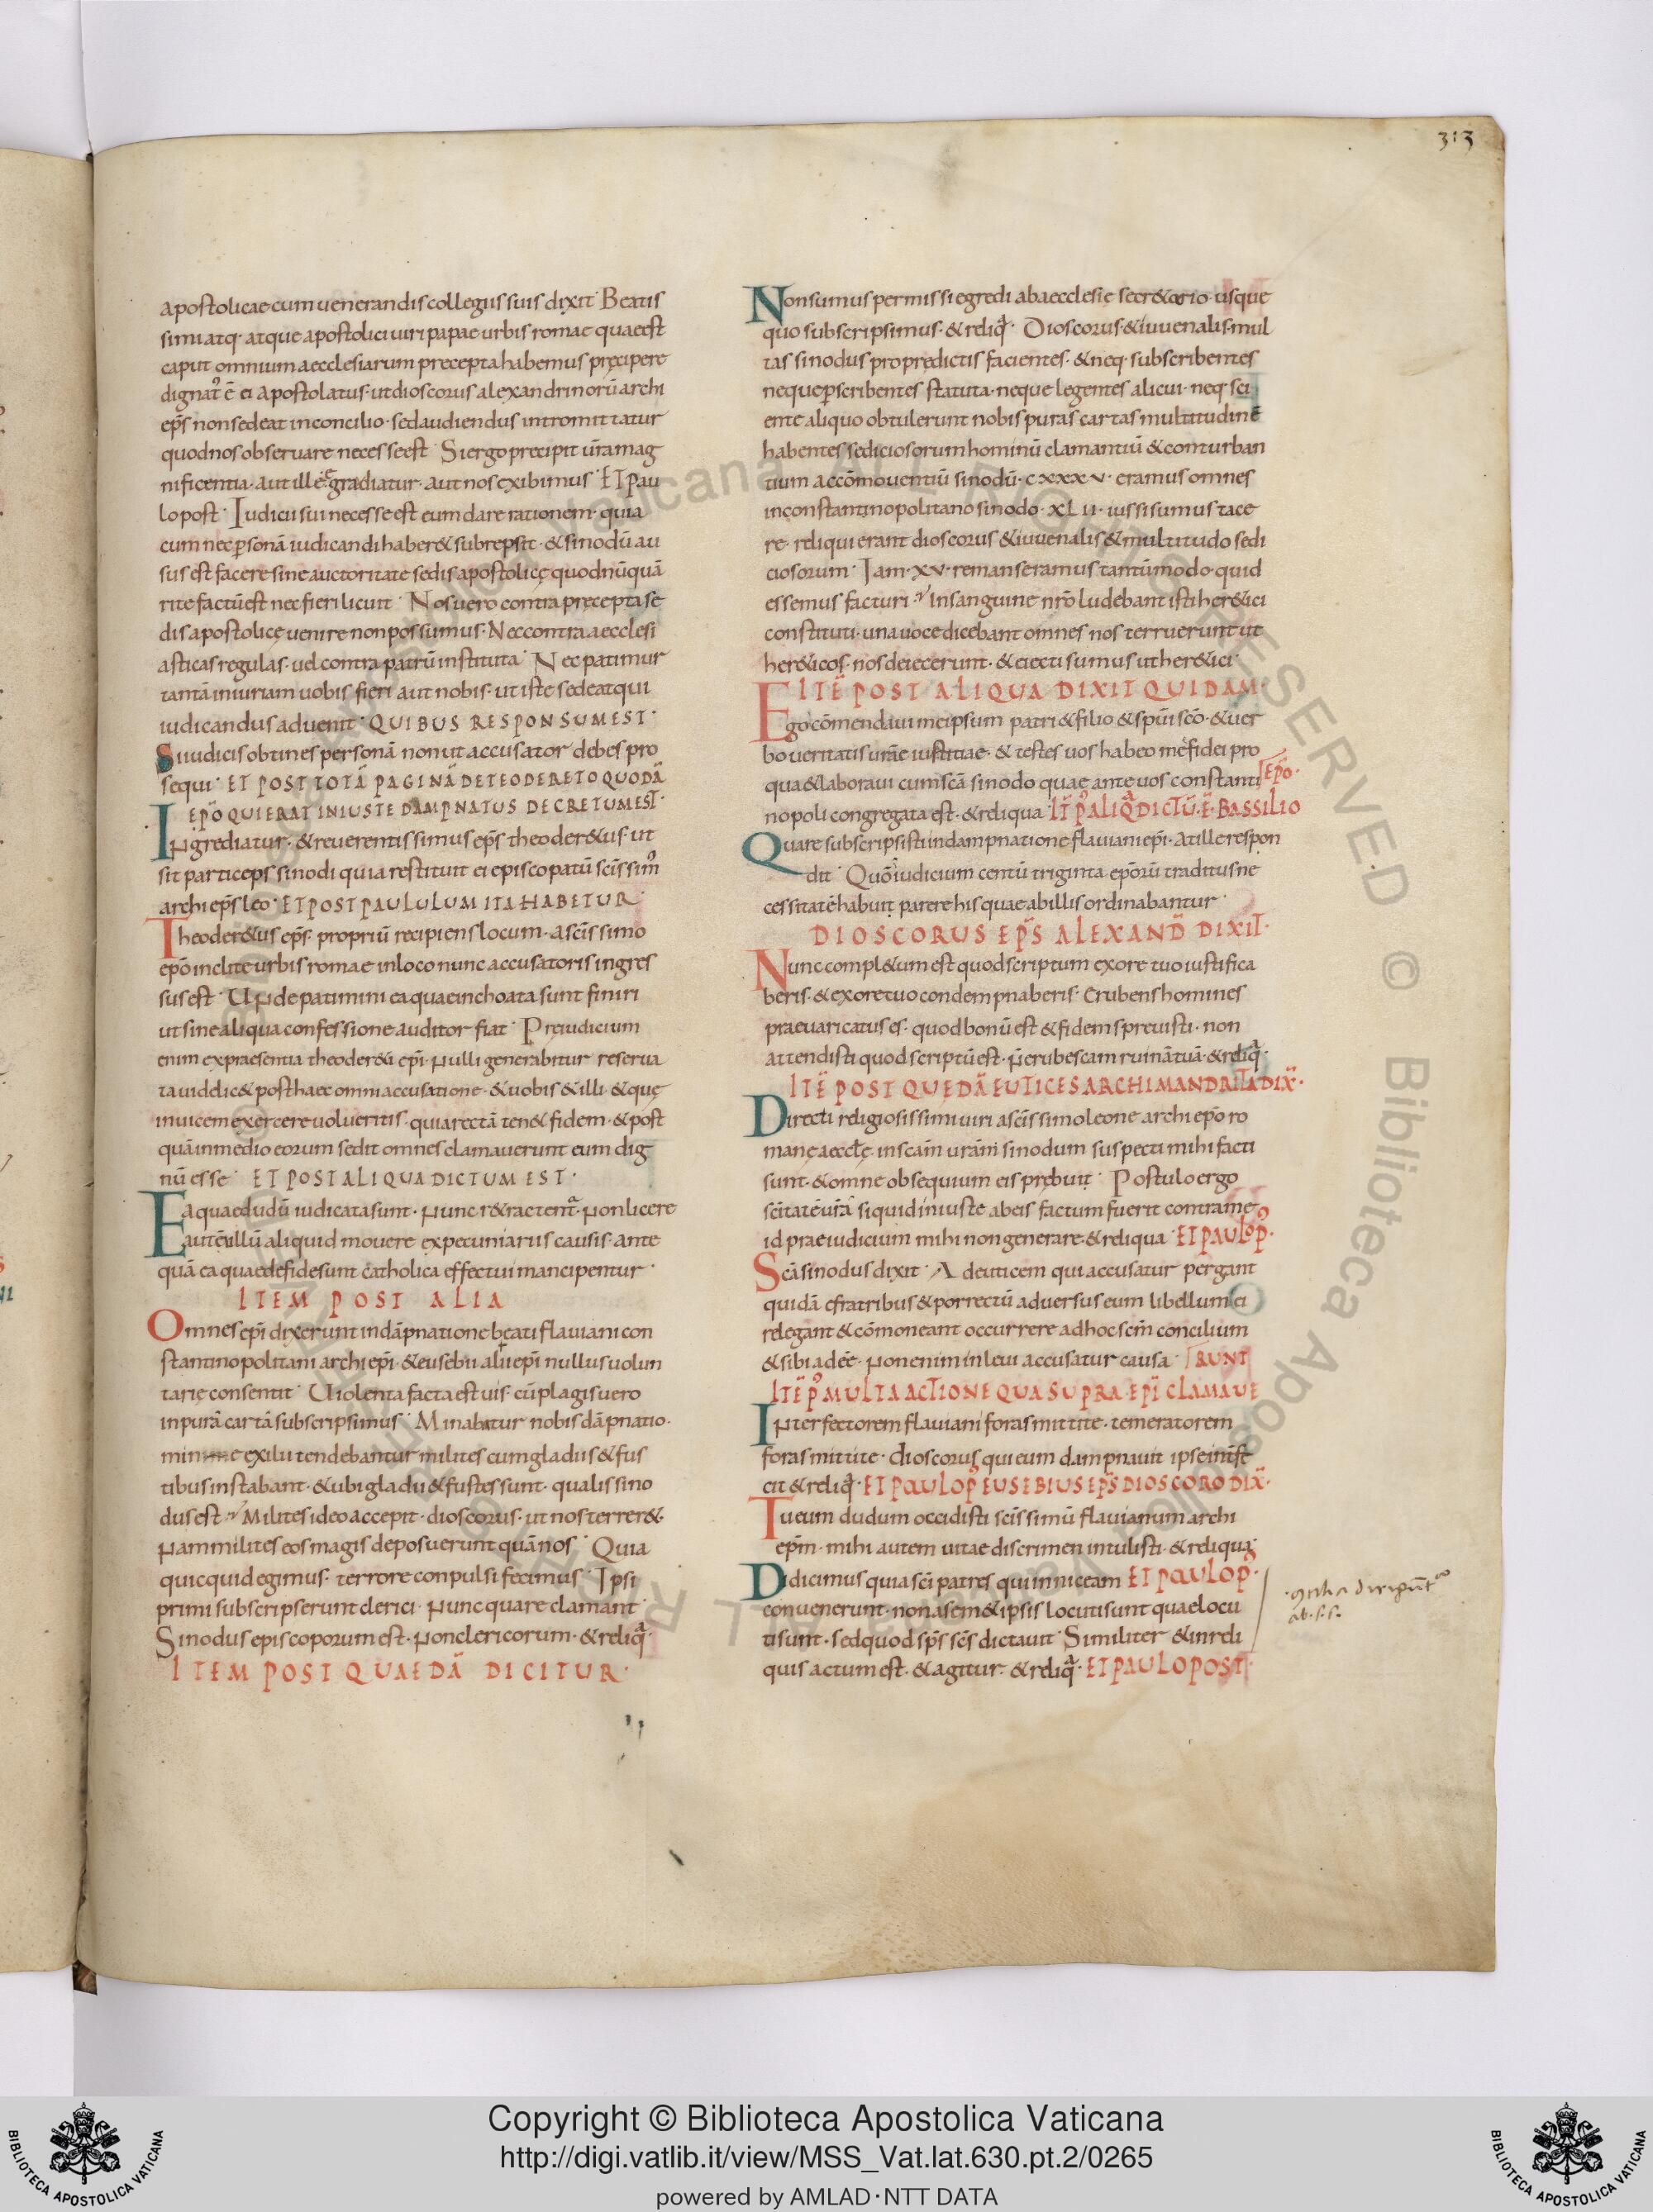 313
apostolicae cum uenerandis collegiis suis dixit· Beatis
simi atq· atque apostolici uiri papae urbis romae quae est
caput omnium aecclesiarum precepta habemus precipere
dignat᾽ ē ei apostolatus· ut dioscorus alexandrinorū archi
ep̄s non sedeat in concilio· sed audiendus intromittatur
quod nos obseruare necesse est· Si ergo precipit ūra mag
nificentia· aut ille egradiatur· aut nos exibimus· ET Pau
lo post· Iudicii sui necesse est eum dare rationem· quia
cum nec p̱sonā iudicandi haber& subrepsit· & sinodū au
sus est facere sine auctoritate sedis apostolicę quod nūquā
rite factū est nec fieri licuit· Nos uero contra precepta se
dis apostolicę uenire non possumus· Nec contra aecclesi
asticas regulas· uel contra patrū instituta· Nec patimur
tantā iniuriam uobis fieri aut nobis· ut iste sedeat qui
iudicandus aduenit· QUIBUS RESPONSUM EST·
Si iudicis obtines personā non ut accusator debes pro
sequi· ET POST TOTĀ PAGINĀ DE TEODERETO QUODĀ
EPŌ QUI ERAT INIUSTE DAMPNATUS DECRETUM EST·
Ingrediatur· & reuerentissimus ep̄s theoder&us· ut
sit particeps sinodi quia restituit ei episcopatū sc̄issim᾽
archiep̄s leo· ET POST PAULULUM ITA HABETUR·
Theoder&us ep̄s· propriū recipiens locum· a sc̄issimo
ep̄o inclite urbis romae in loco nunc accusatoris ingres
sus est· Unde patimini ea quae inchoata sunt finiri
ut sine aliqua confessione auditor fiat· Preiudicium
enim ex praesentia theoder&i ep̄i· nulli generabitur reserua
ta uiddic& posthaec omni accusatione· & uobis & illi· & quę
inuicem exercere uolueritis· quia rectā ten& fidem· & post
quā in medio eorum sedit omnes clamauerunt eum dig
nū esse· ET POST ALIQUA DICTUM EST·
Ea quae dudū iudicata sunt· nunc r&ractent᾽· non licere
autē ullū aliquid mouere ex pecuniariis causis· ante
quā ea quae de fide sunt catholica effectui mancipentur·
ITEM POST ALIA
Omnes ep̄i dixerunt in dāpnatione beati flauiani con
stantinopolitani archiep̄i· & eusebii alii ep̄i nullus uolun
tarie consentit· Uiolenta facta est uis· cū plagis uero
in purā cartā subscripsimus· Minabatur nobis dāpnatio·
min e exilii tendebantur milites cum gladiis & fus
tibus instabant· & ubi gladii & fustes sunt· qualis sino
dus est? Milites ideo accepit· dioscorus· ut nos terrer&·
Nam milites eos magis deposuerunt quā nos· Quia
quicquid egimus· terrore conpulsi fecimus· Ipsi
primi subscripserunt clerici· nunc quare clamant·
Sinodus episcoporum est· non clericorum· & reliq̄·
ITEM POST QUAEDĀ DICITUR·
Non sumus permissi egredi ab aecclesie secr&ario· usque
quo subscripsimus· & reliq̄· Dioscorus· & iuuenalis· mul
tas sinodus pro predictis facientes· & neq· subscribentes
neque p̱scribentes statuta· neque legentes alicui· neq· sci
ente aliquo obtulerunt nobis puras cartas multitudinē
habentes sediciosorum hominū clamantiū & conturban
tium ac cōmouentiū sinodū· cxxxv· eramus omnes
in constantinopolitano sinodo· XLII· iussi sumus tace
re· reliqui erant dioscorus & iuuenalis & multitudo sedi
ciosorum· Iam· XV· remanseramus tantūmodo· quid
essemus facturi? in sanguine nr̄o ludebant isti her&ici
constituti· una uoce dicebant omnes nos terruerunt ut
her&icos· nos deiecerunt· & eiecti sumus ut her&ici·
ITĒ POST ALIQUA DIXIT QUIDAM·
Ego cōmendaui meipsum patri & filio & sp̄ui sc̄o· & uer
bo ueritatis ur̄ae iustitiae· & testes uos habeo meę fidei pro
qua & laboraui cum sc̄a sinodo quae ante uos constanti
EPŌ·
nopoli congregata est· & reliqua· IT̄ P᾽ ALIQ̄ DICTŪ· Ē· BASSILIO
Quare subscripsisti in dampnatione flauiani ep̄i· At ille respon
dit· Quō iudicium centū triginta ep̄orū traditus ne
cessitatē habuit parere his quae ab illis ordinabantur·
DIOSCORUS EP̄S ALEXAND̄ DIXIT·
Nunc compl&um est quod scriptum ex ore tuo iustifica
beris· & ex ore tuo condempnaberis· Erubens homines
praeuaricatus es· quod bonū est & fidem spreuisti· non
attendisti quod scriptū est· n̄ erubescam ruinā tuā· & reliq̄·
ITĒ POST QUEDĀ EUTICES ARCHIMANDRITA DIX̄·
Directi religiosissimi uiri a sc̄issimo leone archiep̄o ro
manę aecclę· in sc̄am ur̄am sinodum suspecti mihi facti
sunt· & omne obsequium eis prębuit· Postulo ergo
sc̄itatē ūrā si quid iniuste ab eis factum fuerit contra me
id praeiudicium mihi non generare· & reliqua· ET PAULO P᾽·
Sc̄a sinodus dixit· Ad euticem qui accusatur pergant
quidā e fratribus & porrectū aduersus eum libellum ei
relegant & cōmoneant occurrere ad hoc sc̄m concilium
& sibi adēē· non enim in leui accusatur causa· RUNT
ITĒ P᾽ MULTA ACTIONE QUA SUPRA EP̄I CLAMAUE
Interfectorem flauiani foras mittite· temeratorem
foras mittite· dioscorus qui eum dampnauit ipse int̄fe
cit & reliq̄· ET PAULO P᾽ EUSEBIUS EP̄S DIOSCORO DIX̄·
Tu eum dudum occidisti sc̄issimū flauianum archi
ep̄m· mihi autem uitae discrimen intulisti· & reliqua·
Didicimus quia sc̄i patres qui in niceam ET PAULO P᾽·
conuenerunt· non a sem&ipsis locuti sunt quae locu
ti sunt· sed quod sp̄s sc̄s dictauit· Similiter & in reli
quis actum est· & agitur· & reliq̄· ET PAULO POST·
Copyright © Biblioteca Apostolica Vaticana
http://digi.vatlib.it/view/MSS_Vat.lat.630.pt.2/0265
powered by AMLAD·NTT DATA
BIBLIOTECA APOSTOLICA VATICANA
BIBLIOTECA APOSTOLICA VATICANA